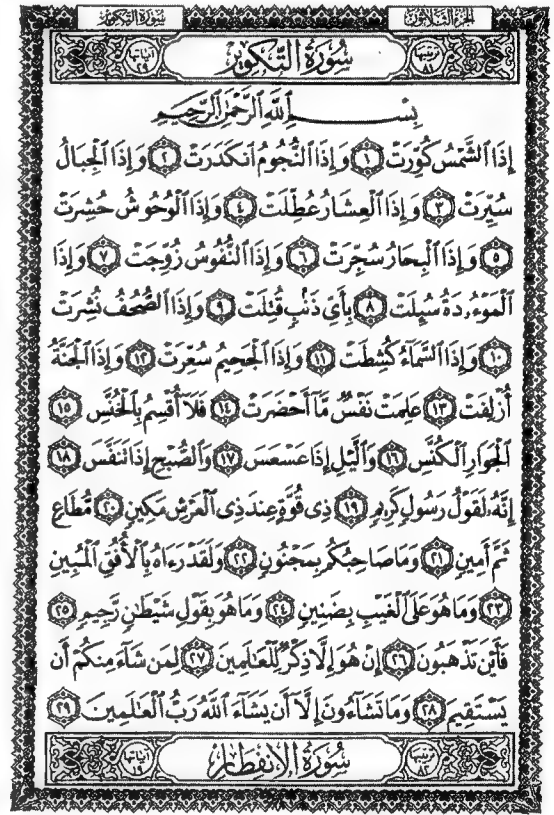 سورة التكوير الجزء الثلاثون
ترتيبها ٨١ سُورَةُ التَّكْوِيرِ آياتها ٢٩
بِسْمِ ٱللَّهِ ٱلرَّحْمَٰنِ ٱلرَّحِيمِ
إِذَا ٱلشَّمْسُ كُوِّرَتْ ١ وَإِذَا ٱلنُّجُومُ ٱنكَدَرَتْ ٢ وَإِذَا ٱلْجِبَالُ
سُيِّرَتْ ٣ وَإِذَا ٱلْعِشَارُ عُطِّلَتْ ٤ وَإِذَا ٱلْوُحُوشُ حُشِرَتْ
٥ وَإِذَا ٱلْبِحَارُ سُجِّرَتْ ٦ وَإِذَا ٱلنُّفُوسُ زُوِّجَتْ ٧ وَإِذَا
ٱلْمَوْءُۥدَةُ سُئِلَتْ ٨ بِأَىِّ ذَنۢبٍ قُتِلَتْ ٩ وَإِذَا ٱلصُّحُفُ نُشِرَتْ
١٠ وَإِذَا ٱلسَّمَآءُ كُشِطَتْ ١١ وَإِذَا ٱلْجَحِيمُ سُعِّرَتْ ١٢ وَإِذَا ٱلْجَنَّةُ
أُزْلِفَتْ ١٣ عَلِمَتْ نَفْسٌ مَّآ أَحْضَرَتْ ١٤ فَلَآ أُقْسِمُ بِٱلْخُنَّسِ ١٥
ٱلْجَوَارِ ٱلْكُنَّسِ ١٦ وَٱلَّيْلِ إِذَا عَسْعَسَ ١٧ وَٱلصُّبْحِ إِذَا تَنَفَّسَ ١٨
إِنَّهُۥ لَقَوْلُ رَسُولٍ كَرِيمٍ ١٩ ذِى قُوَّةٍ عِندَ ذِى ٱلْعَرْشِ مَكِينٍ ٢٠ مُّطَاعٍ
ثَمَّ أَمِينٍ ٢١ وَمَا صَاحِبُكُم بِمَجْنُونٍ ٢٢ وَلَقَدْ رَءَاهُ بِٱلْأُفُقِ ٱلْمُبِينِ
٢٣ وَمَا هُوَ عَلَى ٱلْغَيْبِ بِضَنِينٍ ٢٤ وَمَا هُوَ بِقَوْلِ شَيْطَٰنٍ رَّجِيمٍ ٢٥
فَأَيْنَ تَذْهَبُونَ ٢٦ إِنْ هُوَ إِلَّا ذِكْرٌ لِّلْعَٰلَمِينَ ٢٧ لِمَن شَآءَ مِنكُمْ أَن
يَسْتَقِيمَ ٢٨ وَمَا تَشَآءُونَ إِلَّآ أَن يَشَآءَ ٱللَّهُ رَبُّ ٱلْعَٰلَمِينَ ٢٩
ترتيبها ٨٢ سُورَةُ الانفِطَارِ آياتها ١٩